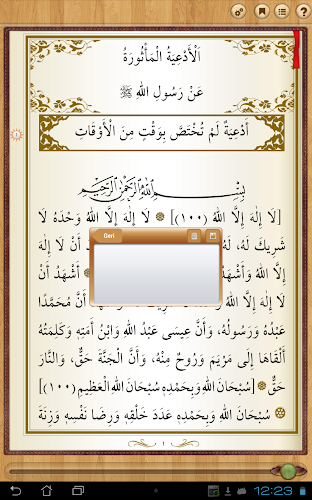 اَلْأَدْعِيَةُ الْمَأْثُورَةُ
عَنْ رَسُولِ اللهِ ﷺ
أَدْعِيَةٌ لَمْ تُخْتَصَّ بِوَقْتٍ مِنَ الْأَوْقَاتِ
بِسْمِ اللهِ الرَّحْمٰنِ الرَّحِيمِ
[لَا إِلٰهَ إِلَّا اللهُ (١٠٠)] ۞ لَا إِلٰهَ إِلَّا اللهُ وَحْدَهُ لَا
شَرِيكَ لَهُ، لَهُ
أَنْ لَا إِلٰهَ
Geri
إِلَّا اللهُ وَأَشْهَدُ
أَشْهَدُ أَنْ
لَا إِلٰهَ إِلَّا اللهُ
أَنَّ مُحَمَّدًا
عَبْدُهُ وَرَسُولُهُ، وَأَنَّ عِيسَى عَبْدُ اللهِ وَابْنُ أَمَتِهِ وَكَلِمَتُهُ
أَلْقَاهَا إِلَى مَرْيَمَ وَرُوحٌ مِنْهُ، وَأَنَّ الْجَنَّةَ حَقٌّ، وَالنَّارَ
حَقٌّ ۞ [سُبْحَانَ اللهِ وَبِحَمْدِهِ سُبْحَانَ اللهِ الْعَظِيمِ (١٠٠)]
۞ سُبْحَانَ اللهِ وَبِحَمْدِهِ عَدَدَ خَلْقِهِ وَرِضَا نَفْسِهِ وَزِنَةَ
١
12:23